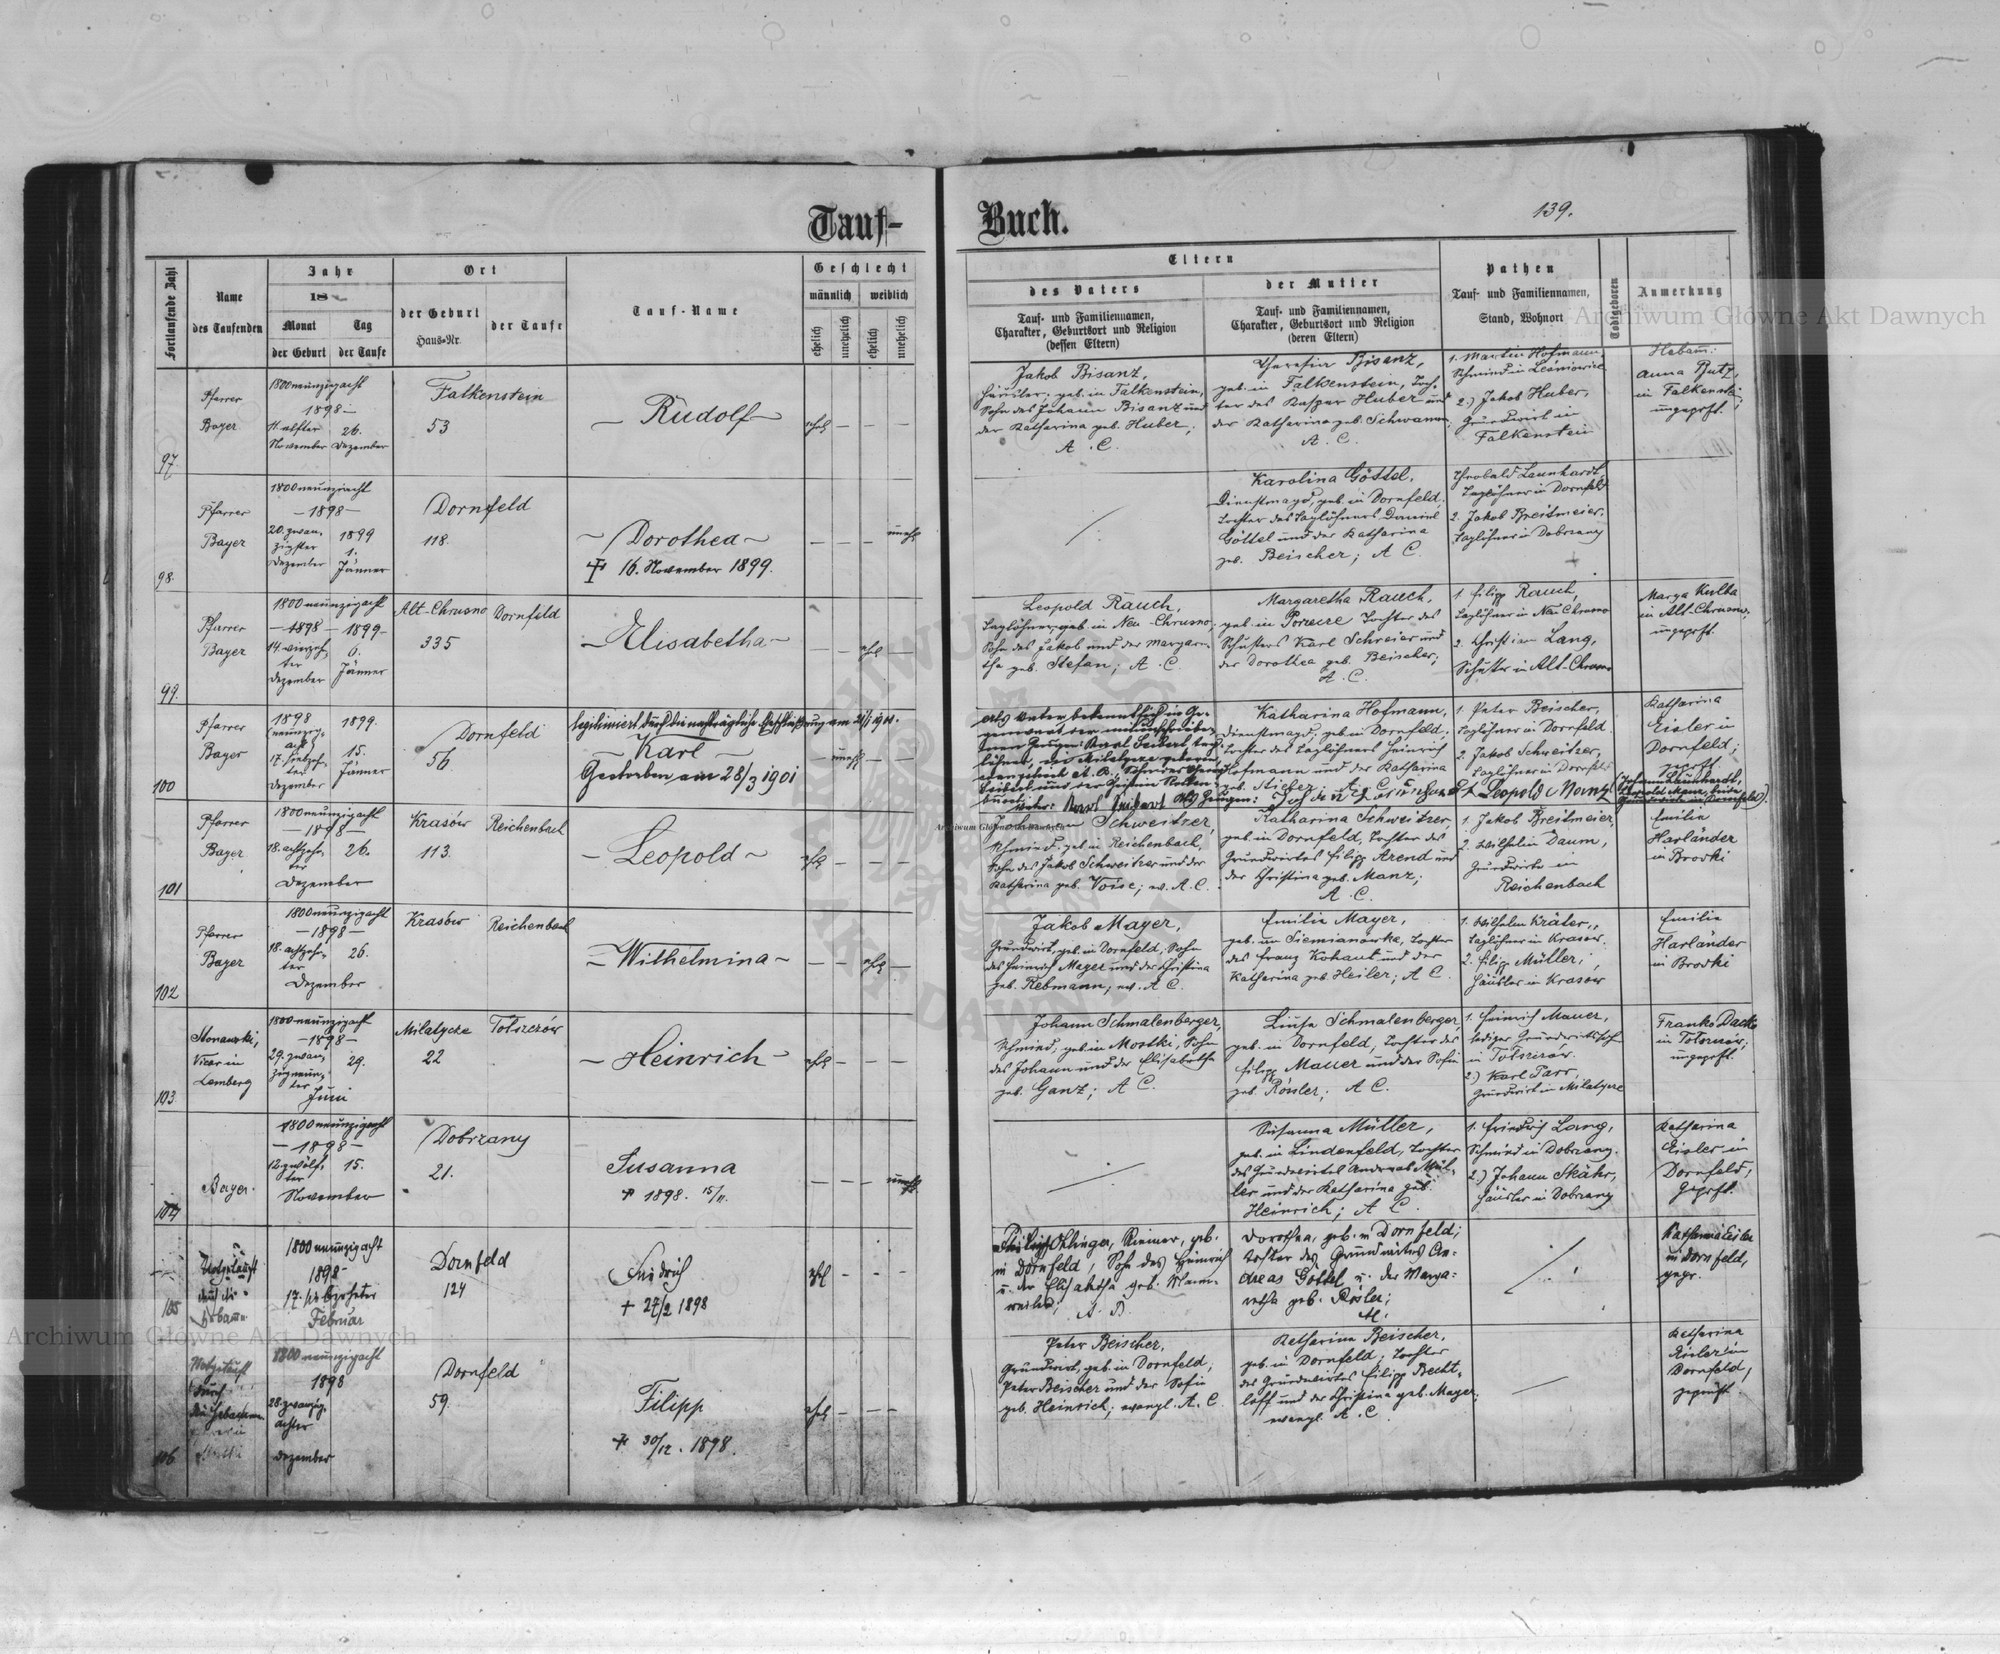 Tauf-Buch.
139.
Fortlaufende Zahl
Name
des Taufenden
Jahr
18
Monat
Tag
der Geburt
der Taufe
Ort
der Geburt
Haus-Nr.
der Taufe
Tauf-Name
Geschlecht
männlich
weiblich
ehelich
unehelich
ehelich
unehelich
Eltern
des Vaters
Tauf- und Familiennamen,
Charakter, Geburtsort und Religion
(dessen Eltern)
der Mutter
Tauf- und Familiennamen,
Charakter, Geburtsort und Religion
(deren Eltern)
Pathen
Tauf- und Familiennamen,
Stand, Wohnort
Todtgeboren
Anmerkung
97.
Pfarrer
Bayer
1800 neunzigacht
1898 –
11. elfter
November
26.
Dezember
Falkenstein
53
– Rudolf –
ehel – – –
Jakob Bisanz,
Häusler, geb. in Falkenstein,
Sohn des Johann Bisanz und
der Katharina geb. Huber;
A. C.
Theresia Bisanz,
geb. in Falkenstein, Toch-
ter des Kaspar Huber und
der Katharina geb. Schwamm;
A. C.
1. Martin Hofmann,
Schmied in
2.) Jakob Huber,
Grundwirt in
Falkenstein
Hebam:
Anna Butz,
in Falkenstein,
ungeprft.
98.
Pfarrer
Bayer
1800 neunzigacht
– 1898 –
20. zwan-
zigster
Dezember
1899
1.
Jänner
Dornfeld
118.
– Dorothea –
† 16. November 1899.
– – – unehl
Karolina Göttel,
Dienstmagd, geb. in Dornfeld,
Tochter des Taglöhners Daniel
Göttel und der Katharina
geb. Beischer; A. C.
Theobald Launhardt,
Taglöhner in Dornfeld
2. Jakob Breitmeier,
Taglöhner in Dobrzany
99.
Pfarrer
Bayer
1800 neunzigacht
– 1898 – 1899 –
14. vierzehn-
ter
Dezember
6.
Jänner
Alt-Chrusno
335
Dornfeld
– Elisabetha –
– – ehel –
Leopold Rauch,
Taglöhner, geb. in Neu-Chrusno,
Sohn des Jakob und der Margare-
tha geb. Stefan; A. C.
Margaretha Rauch,
geb. in Tochter des
Schusters Karl Schreier und
der Dorothea geb. Beischer;
A. C.
1. Filipp Rauch,
Taglöhner in Neu Chrusno
2. Christian Lang,
Schuster in Alt-Chrusno
Marya Kulka
in Alt-Chrusno,
ungeprft.
100
Pfarrer
Bayer
1898
(neunzig-
acht)
17. siebzehn-
ter
Dezember
1899.
15.
Jänner
Dornfeld
56.
legitimiert durch die nachträgliche Eheschließung am
– Karl –
Gestorben am 28/3 1901
– unehl – –
Katharina Hofmann,
Dienstmagd, geb. in Dornfeld,
Tochter des Taglöhners Heinrich
Hofmann und der Katharina
1 Peter Beischer,
Taglöhner in Dornfeld.
2. Jakob Schweitzer,
Taglöhner in Dornfeld
Katharina
Eisler in
Dornfeld;
geprft.
Vater: Karl Seibert Als Zeugen: Johann Launhardt Leopold Manz
(Johann Launhardt,
Leopold Manz, beide
Grundwirte in Dornfeld).
101
Pfarrer
Bayer
1800 neunzigacht
– 1898 –
18. achtzehn-
ter
Dezember
26.
Krasów
113.
Reichenbach
– Leopold –
ehel – – –
Johann Schweitzer,
Schmied, geb. in Reichenbach,
Sohn des Jakob Schweitzer und der
Katharina geb. Voise; ev. A. C.
Katharina Schweitzer,
geb. in Dornfeld, Tochter des
Grundwirtes Filipp Arend und
der Christina geb. Manz;
A. C.
1. Jakob Breitmeier,
2. Wilhelm Daum,
Grundwirte in
Reichenbach
Emilie
Harländer
in Brodki
102
Pfarrer
Bayer
1800 neunzigacht
– 1898 –
18. achtzehn-
ter
Dezember
26.
Krasów
Reichenbach
– Wilhelmina –
– – ehel –
Jakob Mayer,
Grundwirt, geb. in Dornfeld, Sohn
des Heinrich Mayer und der Christina
geb. Rebmann; ev. A. C.
Emilie Mayer,
geb. in Siemianowka, Tochter
des Franz Kohaut und der
Katharina geb. Heiler; A C.
1. Wilhelm Kräter,
Taglöhner in Krasow.
2. Filipp Müller,
Häusler in Krasow
Emilie
Harländer
in Brodki
103.
Vicar in
Lemberg
1800 neunzigacht
– 1898 –
29. zwan-
zigneun-
ter
Juni
29.
Milatycze
22
Tołszczów
– Heinrich –
ehel – – –
Johann Schmalenberger,
Schmied, geb. in Mostki, Sohn
des Johann und der Elisabetha
geb. Ganz; A C.
Luise Schmalenberger,
geb. in Dornfeld, Tochter des
Filipp Mauer und der Sofie
geb. Rösler; A C.
1. Heinrich Mauer,
lediger Grundwirtssohn
in Tołszczów.
2.) Karl Parr,
Grundwirt in Milatycze
Franko Dacko
in
ungeprft.
104
Bayer.
1800 neunzigacht
– 1898 –
12. zwölf-
ter
November
15.
Dobrzany
21.
Susanna
† 1898. 15/11.
– – – unehl
Susanna Müller,
geb. in Lindenfeld, Tochter
des Grundwirtes Andreas Mül-
ler und der Katharina geb.
Heinrich; A. C.
1. Friedrich Lang,
Schmied in Dobrzany.
2.) Johann Skähr,
Häusler in Dobrzany
Katharina
Eisler in
Dornfeld,
geprft.
105
Notgetauft
durch die
Hebamme
1800 neunzigacht
1898
17. siebzehnter
Februar
Dornfeld
124
Friedrich
† 27/2 1898
ehl – – –
Ohlinger, Riemer, geb.
in Dornfeld, Sohn des Heinrich
u. der Elisabetha geb. Mann-
weiler;
Dorothea, geb. in Dornfeld;
Tochter des Grundwirtes An-
dreas Göttel u. der Marga-
retha geb. Rösler;
Katharina Eisler
in Dornfeld,
gepr.
106
Notgetauft
durch
die Hebamme
1800 neunzigacht
1898
28. zwanzig-
achter
Dezember
Dornfeld
59.
Filipp
† 30/12. 1898.
ehel – – –
Peter Beischer,
Grundwirt, geb. in Dornfeld,
Peter Beischer und der Sofie
geb. Heinrich; evangl. A. C.
Katharina Beischer,
geb. in Dornfeld, Tochter
des Grundwirtes Filipp Becht-
loff und der Christina geb. Mayer;
evangl. A. C
Katharina
Eisler in
Dornfeld,
geprüft.
Archiwum Główne Akt Dawnych
Archiwum Główne Akt Dawnych
Archiwum Główne Akt Dawnych